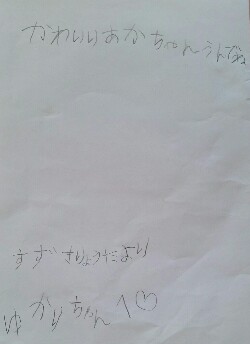 かわいいあかちゃんうんでね
すず きりょうだより
ゆかりちゃんへ♡